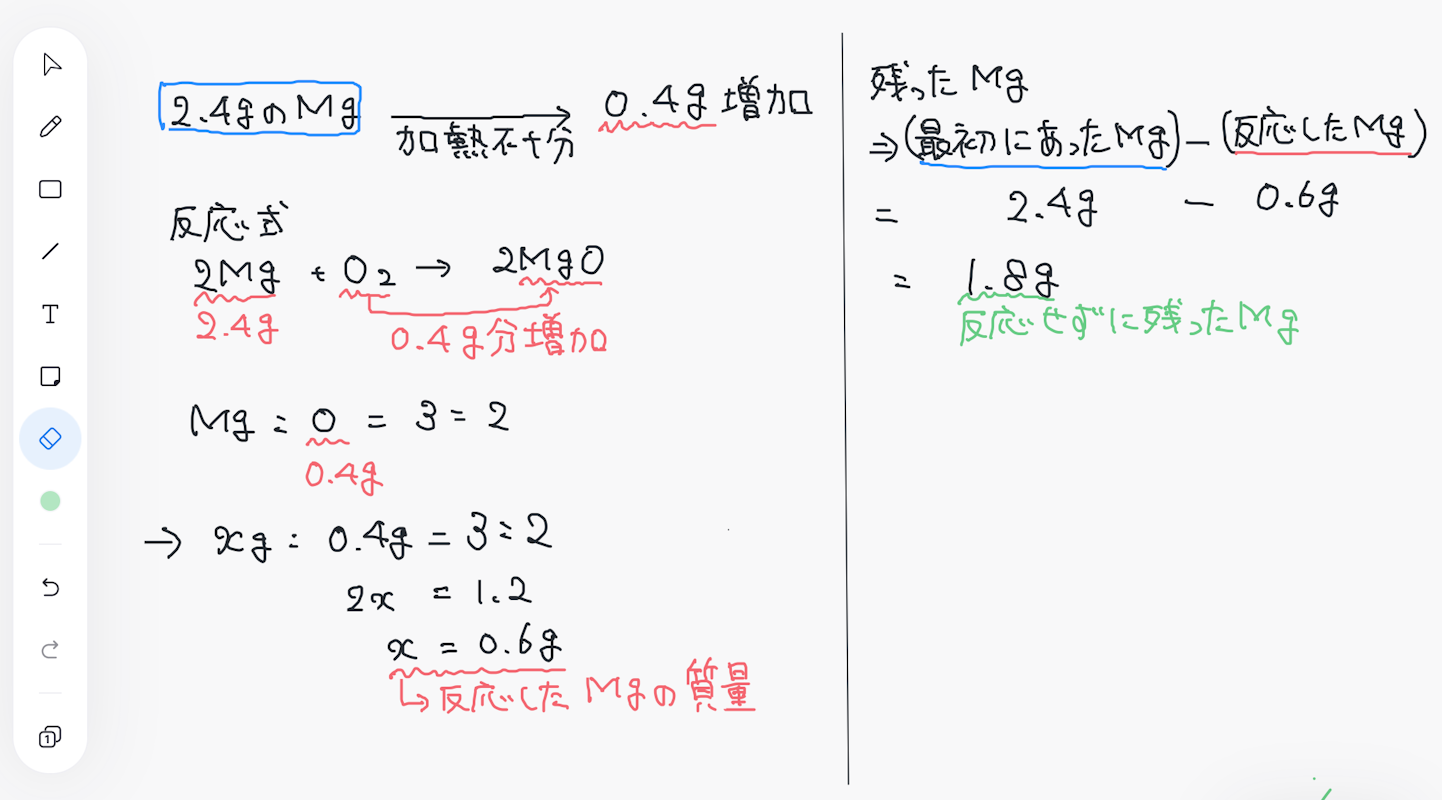 2.4gのMg 加熱不十分 0.4g増加
反応式
2Mg + O2 → 2MgO
2.4g 0.4g分増加
Mg : O = 3 : 2
0.4g
→ xg : 0.4g = 3 : 2
2x = 1.2
x = 0.6g
↳反応したMgの質量
残ったMg
⇒(最初にあったMg) − (反応したMg)
= 2.4g − 0.6g
= 1.8g
反応せずに残ったMg
T
1